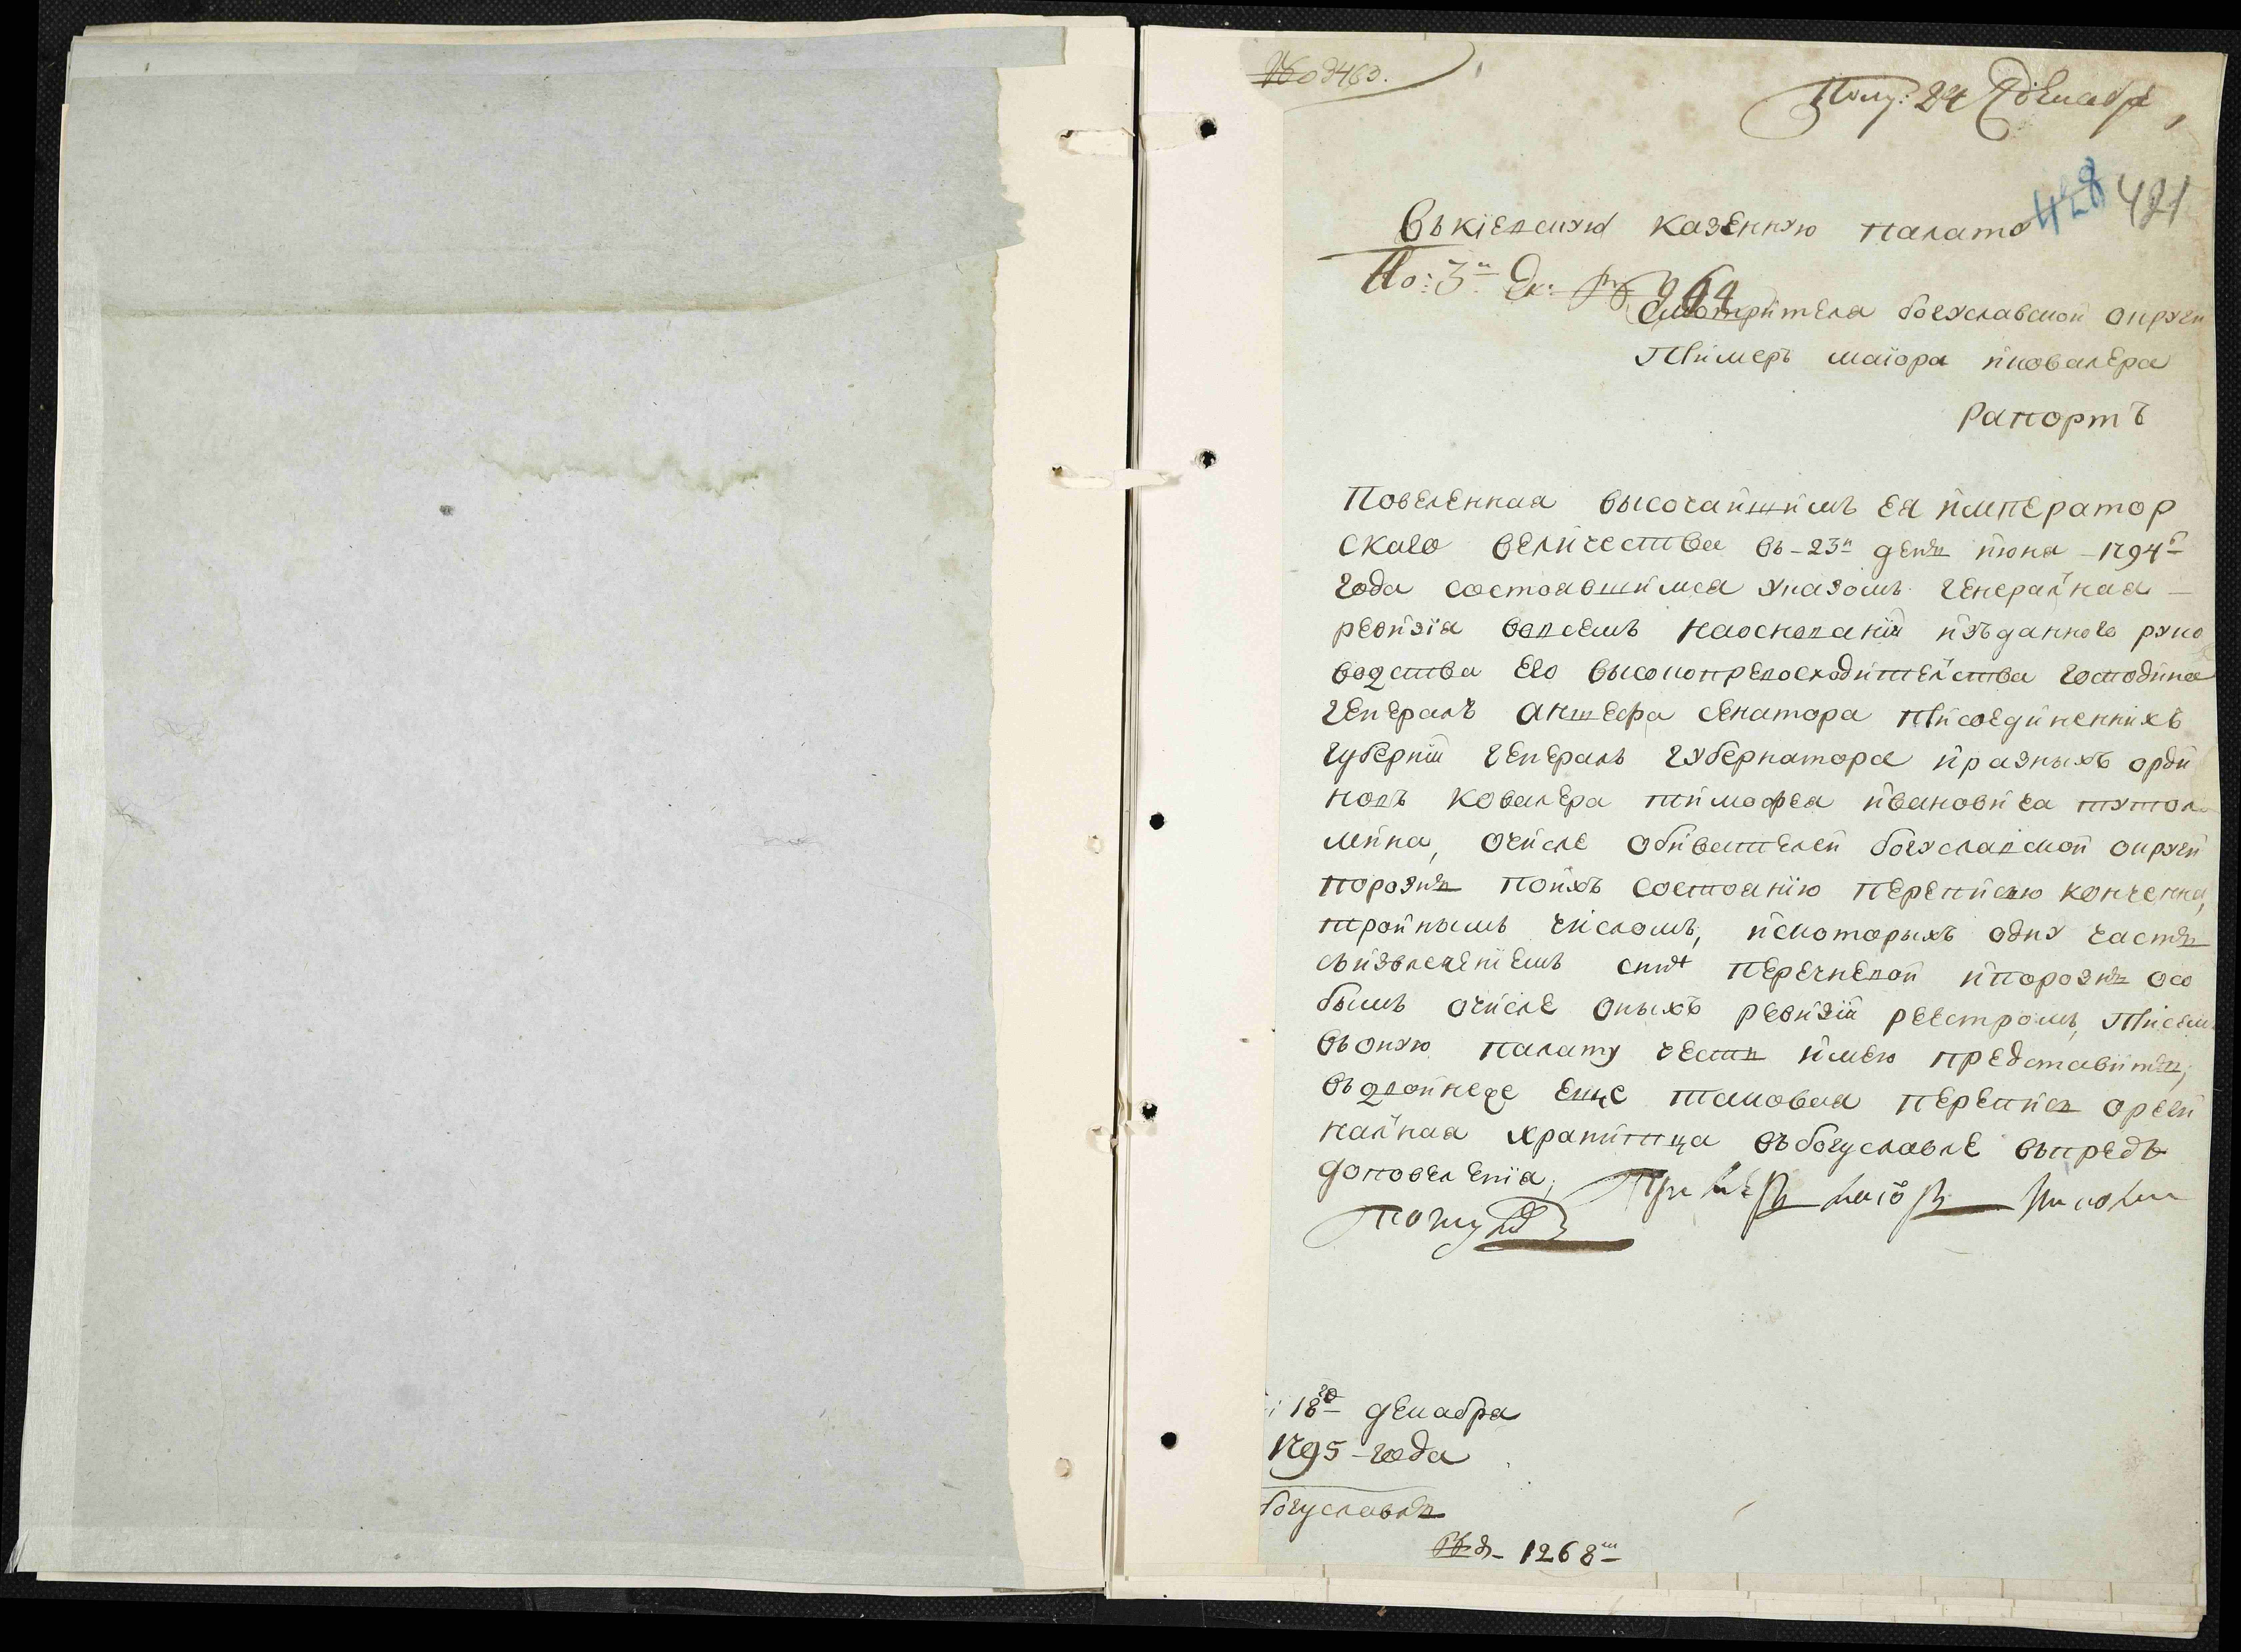 № 3463.
Полу: 24 декабр
428 421
Въ киевскую казенную палату
По: 3й Эк: № 964
Смотрителя богуславской округи
Примеръ маиора икавалера
рапортъ
Повеленная высочайшимъ ея император
скаго величества въ-23й день июня-1794г
года состоявшимся указомъ генералная
ревизия всясемъ наоснованіи изъданного руко
водства его высокопревосходителства господина
генералъ аншефа сенатора присоединеннихъ
губерніи генералъ губернатора иразныхъ орди
новъ ковалера тимофея ивановича тутол
мина, очисле обивателей богуславской округи
порознь поихъ состоянію переписью конченна,
тройнымъ числомъ, искоторыхъ одну часть
съизвлечениемъ перечневой ипорознь осо
бымъ очисле оныхъ ревизіи реестромъ, присемъ
въоную палату честь имею представить;
въдвойнеже еще таковая перепись ореги
налная хранитца въбогуславле впредь
доповеленія; Примеръ маіоръ
18го декабря
1795-года
богуславль
№ 1268й